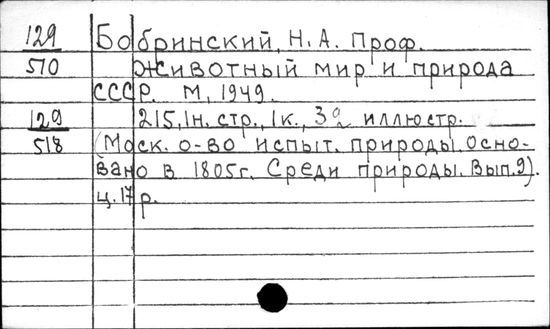 129 Бобринский, Н. А. Проф.
510 Животный мир и природа
СССР. М, 1949.
129 215, 1н. стр., 1к., 32 иллюстр.
518 (Моск. о-во испыт. природы. Осно-
вано в 1805г. Среди природы. Вып.9).
ц. 17 р.